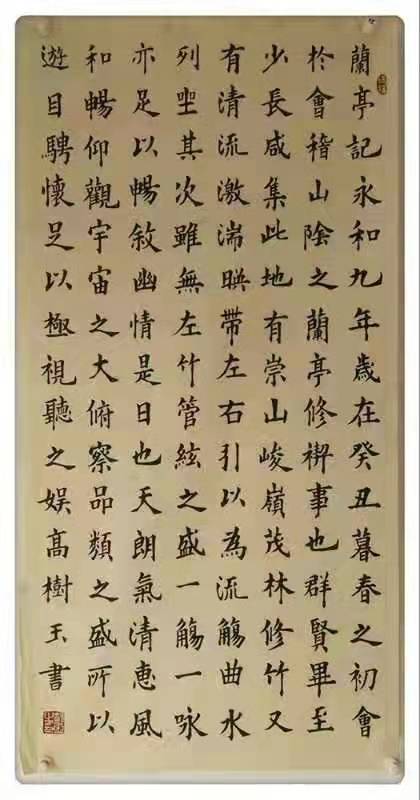 蘭亭記永和九年歲在癸丑暮春之初會
於會稽山陰之蘭亭修禊事也群賢畢至
少長咸集此地有崇山峻嶺茂林修竹又
有清流激湍暎帶左右引以為流觴曲水
列坐其次雖無左竹管絃之盛一觴一咏
亦足以暢敘幽情是日也天朗氣清惠風
和暢仰觀宇宙之大俯察品類之盛所以
遊目騁懷足以極視聽之娛高樹玉書